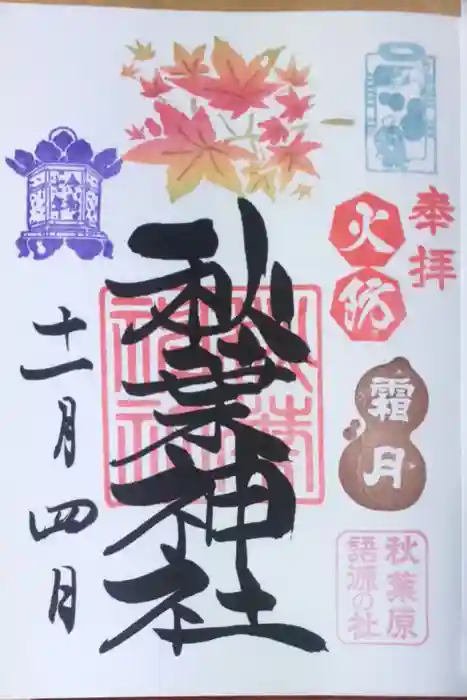 奉拝
火防
霜月
秋葉原
語源の社
秋葉神社
秋葉
神社
十一月四日